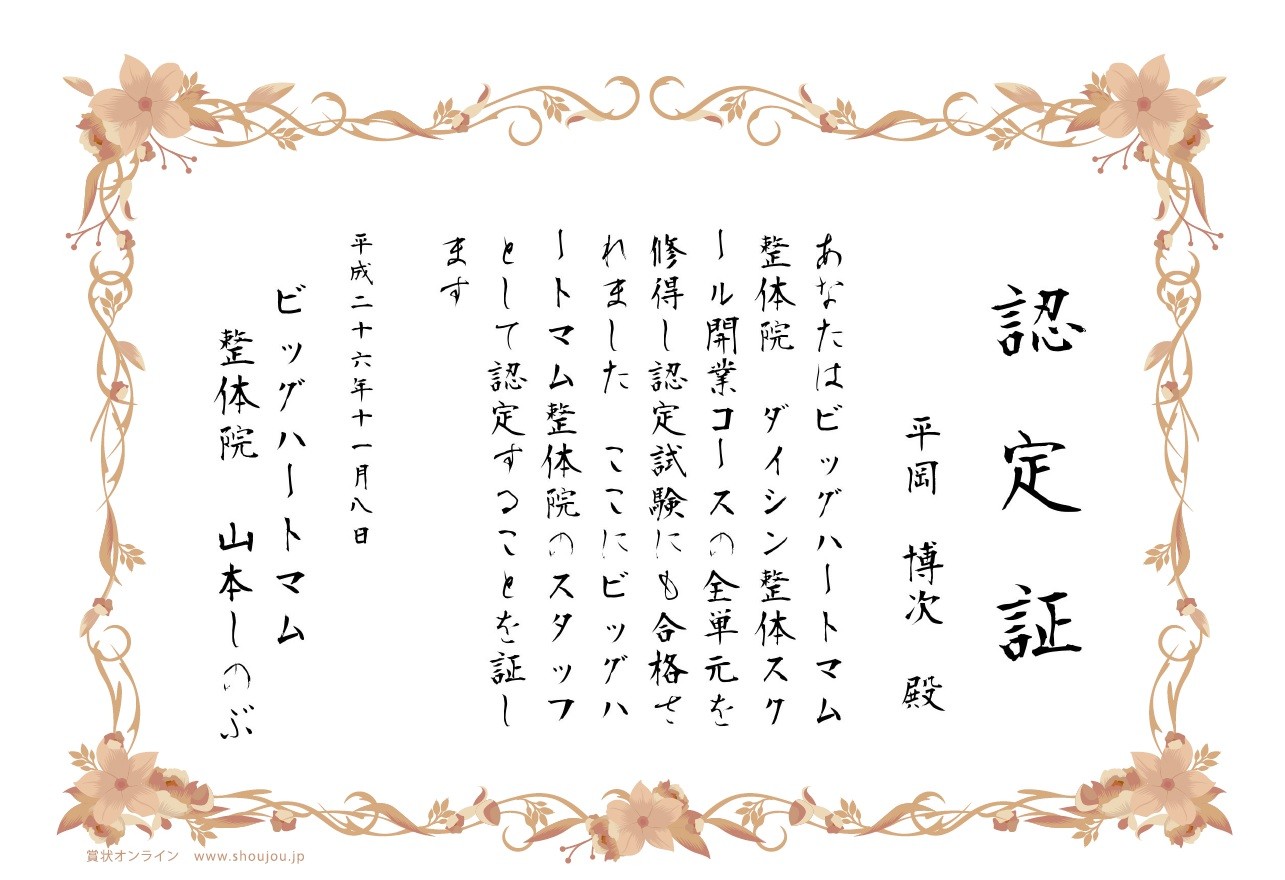 認定証
平岡 博次 殿
あなたはビッグハートマム
整体院 ダイシン整体スク
ール開業コースの全単元を
修得し認定試験にも合格さ
れました ここにビッグハ
ートマム整体院のスタッフ
として認定することを証し
ます
平成二十六年十一月八日
ビッグハートマム
整体院 山本しのぶ
賞状オンライン www.shoujou.jp